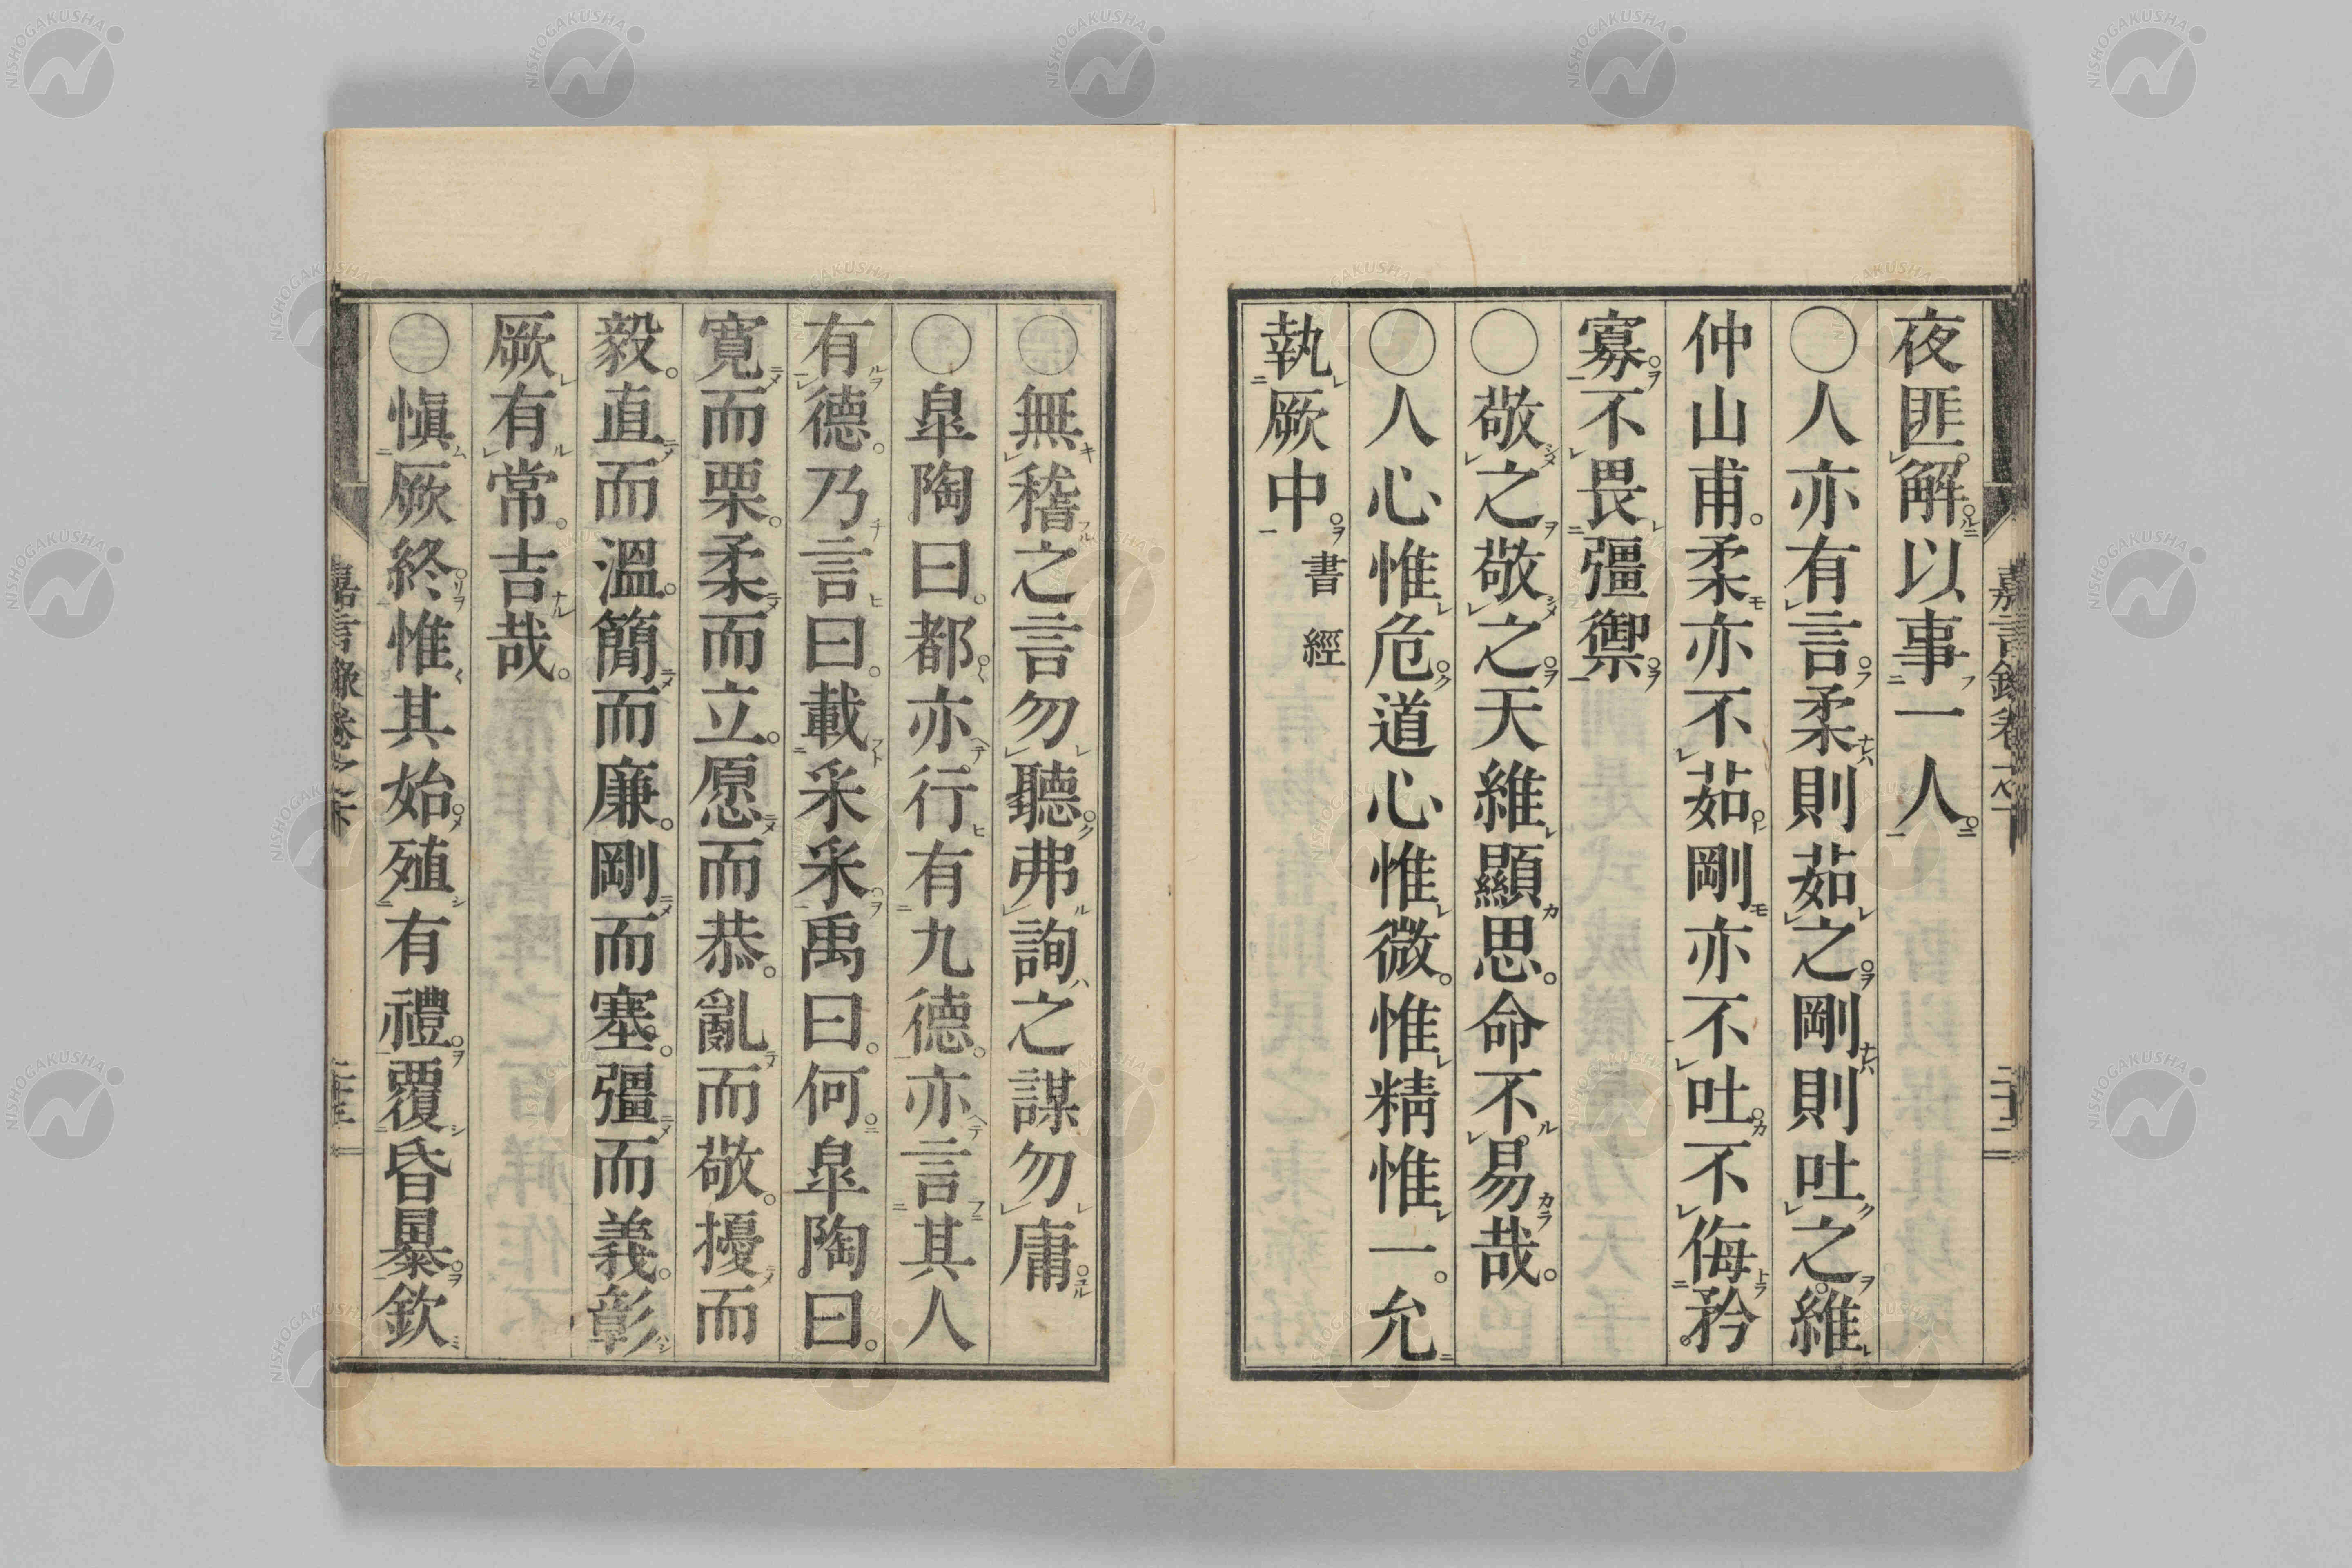 夜匪解以事一人
○人亦有言柔則茹之剛則吐之維
仲山甫柔亦不茹剛亦不吐不侮矜
寡不畏彊禦
○敬之敬之天維顯思命不易哉
○人心惟危道心惟微惟精惟一允
執厥中 書經
○無稽之言勿聽弗詢之謀勿庸
○皐陶曰都亦行有九德亦言其人
有德乃言曰載采采禹曰何皐陶曰
寬而栗柔而立愿而恭亂而敬擾而
毅直而溫簡而廉剛而塞彊而義彰
厥有常吉哉
○愼厥終惟其始殖有禮覆昏暴欽
嘉言錄卷之
NISHOGAKUSHA